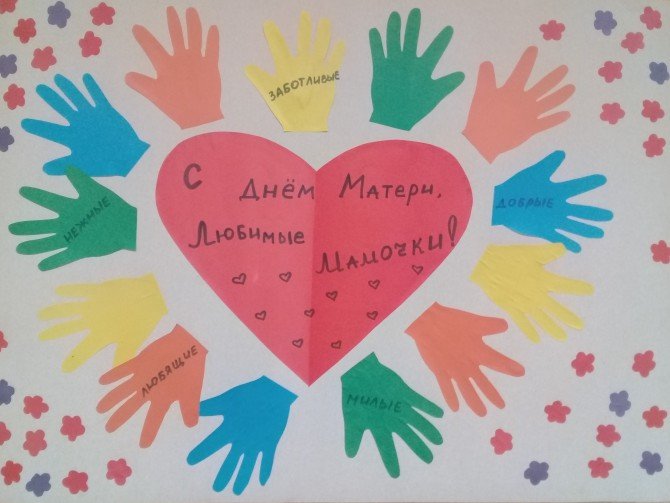 ЗАБОТЛИВЫЕ
С Днём Матери,
Любимые Мамочки!
НЕЖНЫЕ
ДОБРЫЕ
ЛЮБЯЩИЕ
МИЛЫЕ